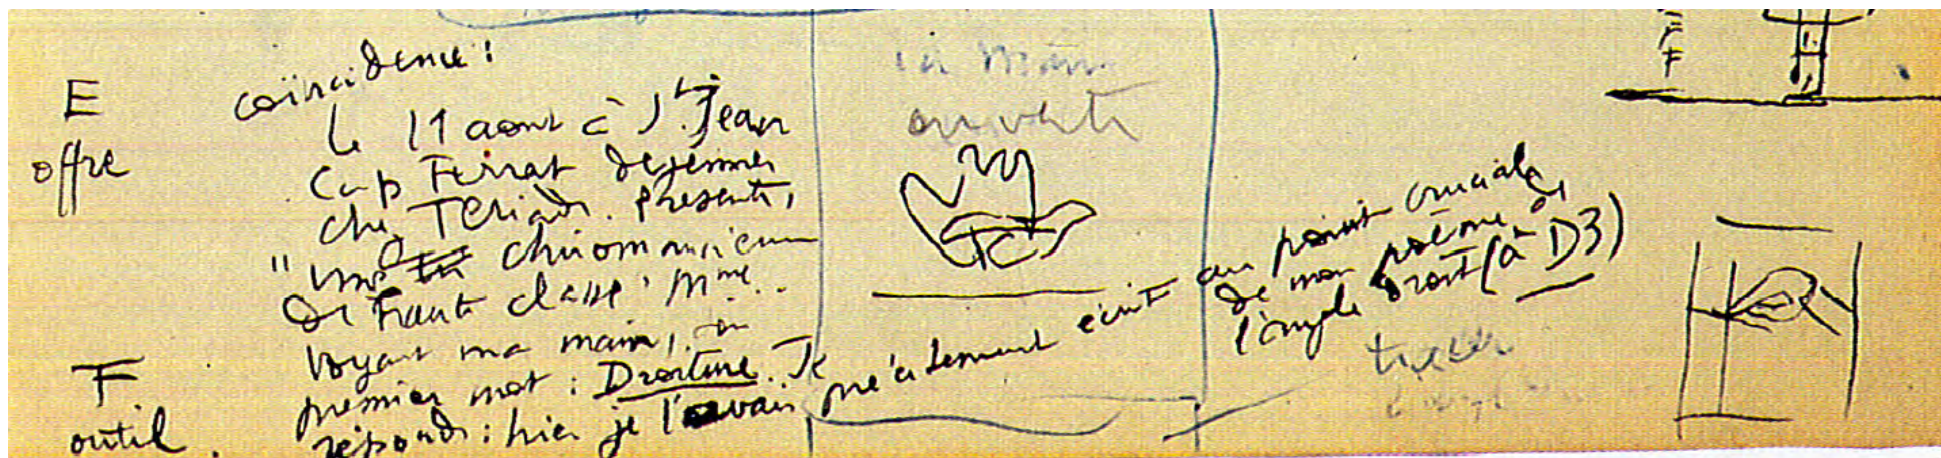 E
offre
coïncidence :
le 11 aout à St Jean
Cap Ferrat dejeuner
chez Tériade. présente,
"une chiromancienne
de haute classe" Mme..
voyant ma main, son
premier mot : Droiture. Je
réponds : hier je l'avais précisément écrit au point crucial
de mon poème de
l'angle droit (à D3)
F
outil.
la main
ouverte
tracer